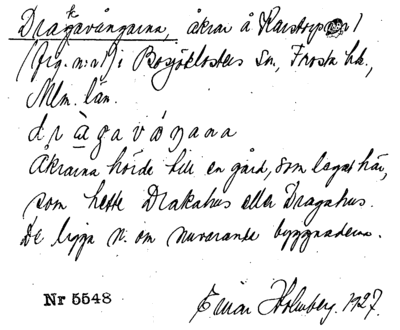 Dragavångarna, åkrar å Karstorp nr 1
(fig. n:a 1) i Bosjöklosters sn, Frosta hd.,
Mlm. län.
dràgavåŋana
Åkrarna hörde till en gård, som legat här,
som hette Drakahus eller Dragahus.
De ligga n. om nuvarande byggnaderna.
Nr 5548 Einar Holmberg. 1927.